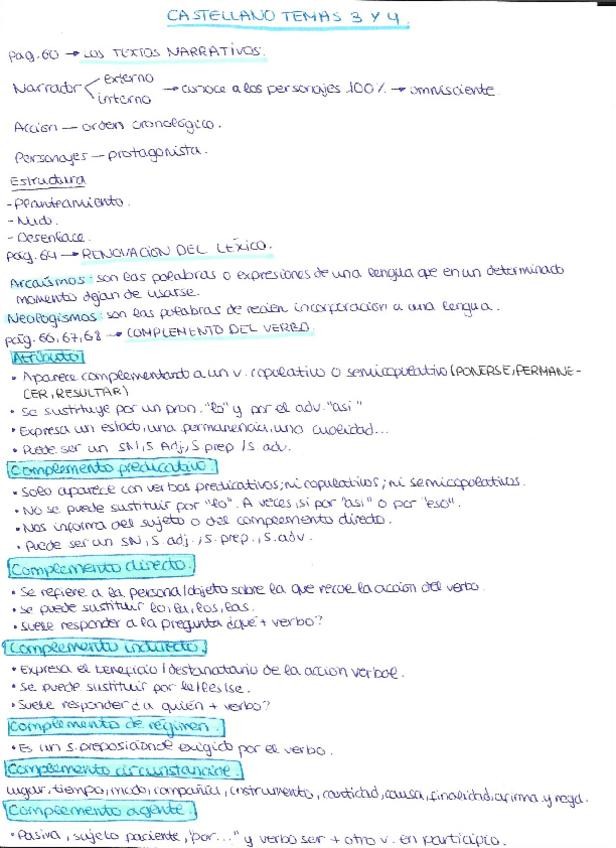 CASTELLANO TEMAS 3 Y 4.
pag.60 → LOS TEXTOS NARRATIVOS.
Narrador < externo
interno → conoce a los personajes 100% → omnisciente
Acción — orden cronológico.
Personajes — protagonista.
Estructura
- Planteamiento.
- Nudo.
- Desenlace.
pág. 64 → RENOVACIÓN DEL LÉXICO.
Arcaísmos: son las palabras o expresiones de una lengua que en un determinado
momento dejan de usarse.
Neologismos: son las palabras de recien incorporación a una lengua.
pág. 66, 67, 68 → COMPLEMENTO DEL VERBO.
Atributo
• Aparece complementando a un v. copulativo o semicopulativo (PONERSE, PERMANE-
CER, RESULTAR)
• Se sustituye por un pron. "lo" y por el adv. "así"
• Expresa un estado, una permanencia, una cualidad...
• Puede ser un SN, S Adj, S prep / S adv.
Complemento predicativo.
• Solo aparece con verbos predicativos; ni copulativos; ni semicopulativos.
• No se puede sustituir por "lo". A veces, si por "así" o por "eso".
• Nos informa del sujeto o del complemento directo.
• Puede ser un SN, S adj., S. prep., S. adv.
Complemento directo.
• Se refiere a la persona/objeto sobre la que recae la acción del verbo.
• Se puede sustituir lo, la, los, las.
• Suele responder a la pregunta ¿qué + verbo?
Complemento indirecto.
• Expresa el beneficio / destinatario de la acción verbal.
• Se puede sustituir por le/les/se.
• Suele responder ¿a quién + verbo?
Complemento de régimen.
• Es un S. preposicional exigido por el verbo.
Complemento circunstancial.
lugar, tiempo, modo, compañía, instrumento, cantidad, causa, finalidad, afirma. y nega.
Complemento agente.
• Pasiva, sujeto paciente, "por..." y verbo ser + otro v. en participio.